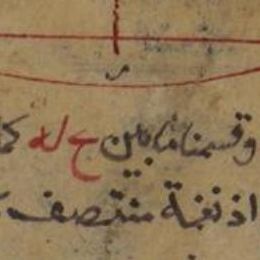 وقسمنا ما بين ح له
اذ نغمة منتصف